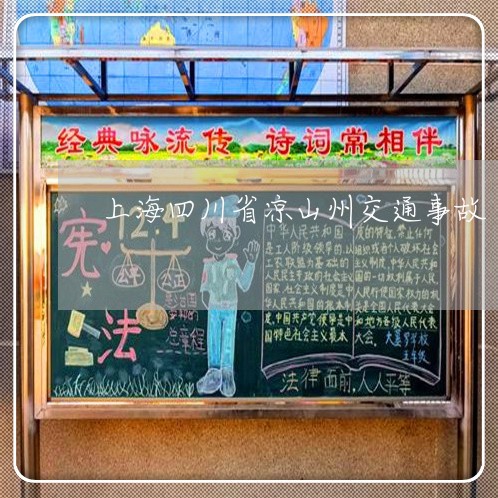 经典咏流传 诗词常相伴
上海四川省凉山州交通事故
宪法
12.4
公平
公正
总章程
中华人民共和国
是工人阶级领导的,以
工农联盟为基础的
人民民主专政的社会主义
国家,社会主义制度是中
华人民共和国的根本制
度,中国共产党领导是中
国特色社会主义最本
质的特征,禁止任何
组织或者个人破坏社会
主义制度,中华人民共和
国的一切权利属于人民,
人民行使国家权力的机
关是全国人民代表大会
和地方各级人民代表
大会。
五年级
法律面前,人人平等